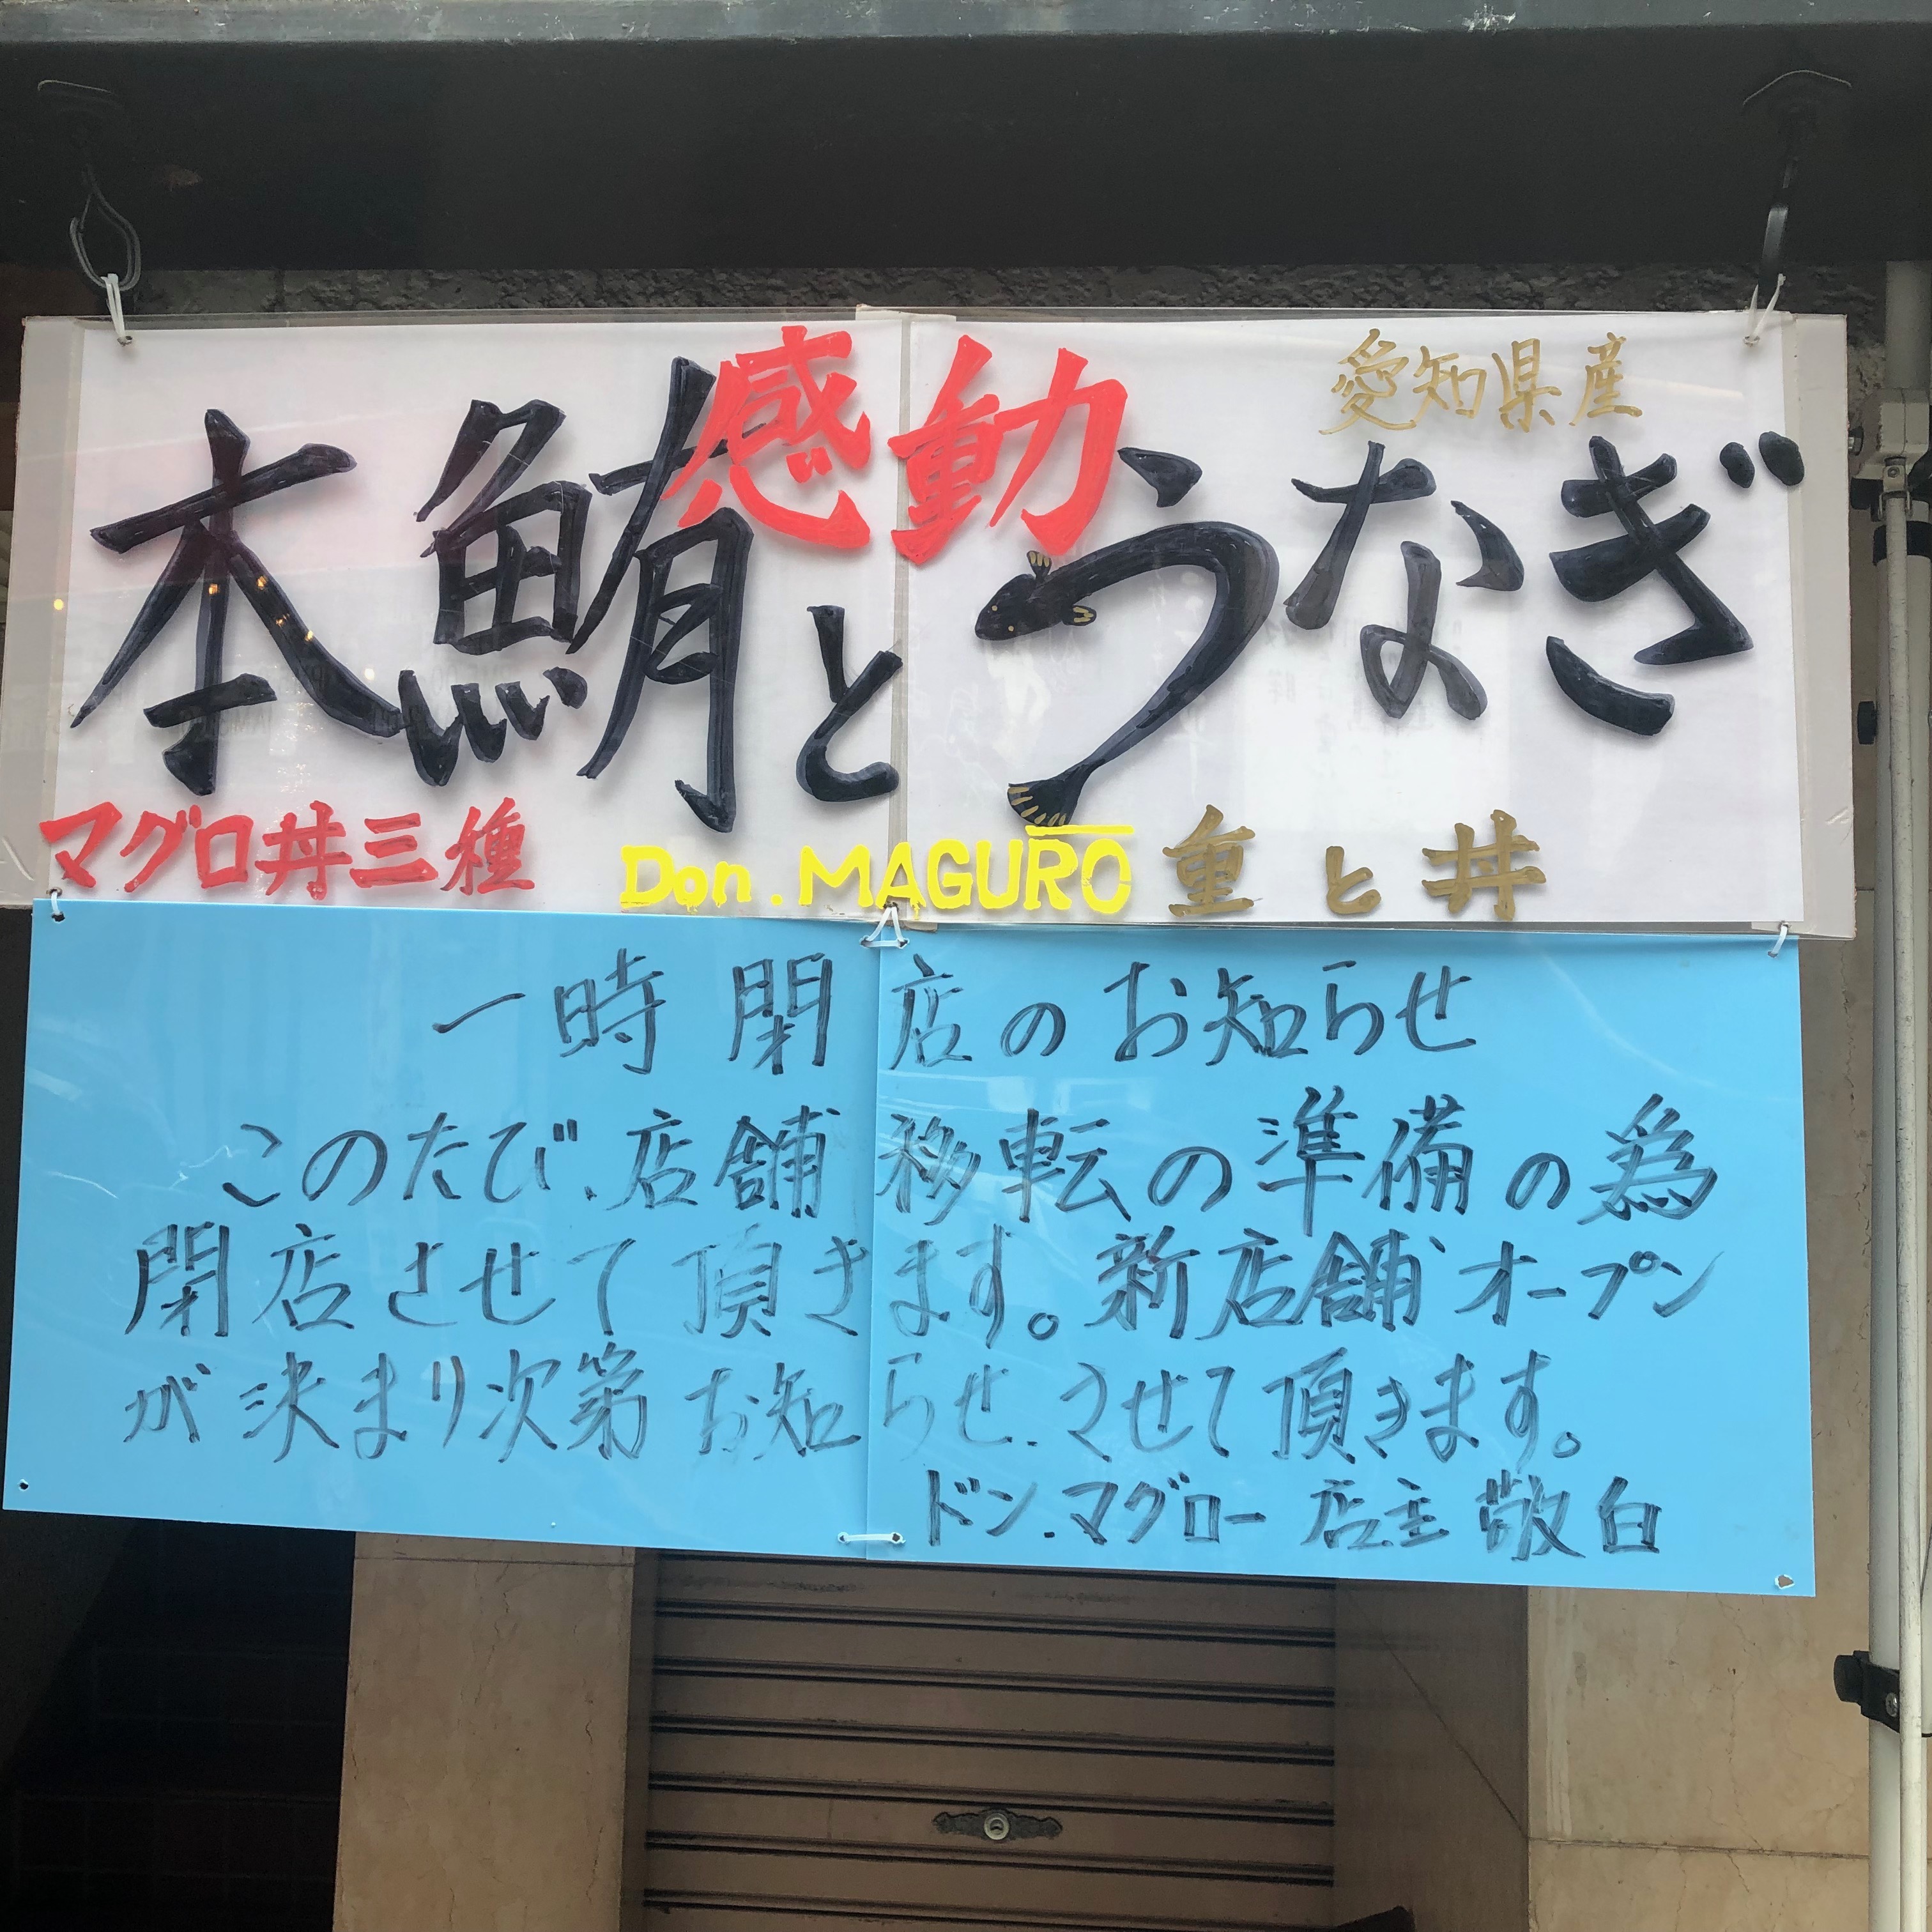 感動
愛知県産
本鮪とうなぎ
マグロ丼三種
Don.MAGURO
重と丼
一時閉店のお知らせ
このたび、店舗移転の準備の為
閉店させて頂きます。新店舗オープン
が決まり次第お知らせ.させて頂きます。
ドン.マグロー 店主 敬白